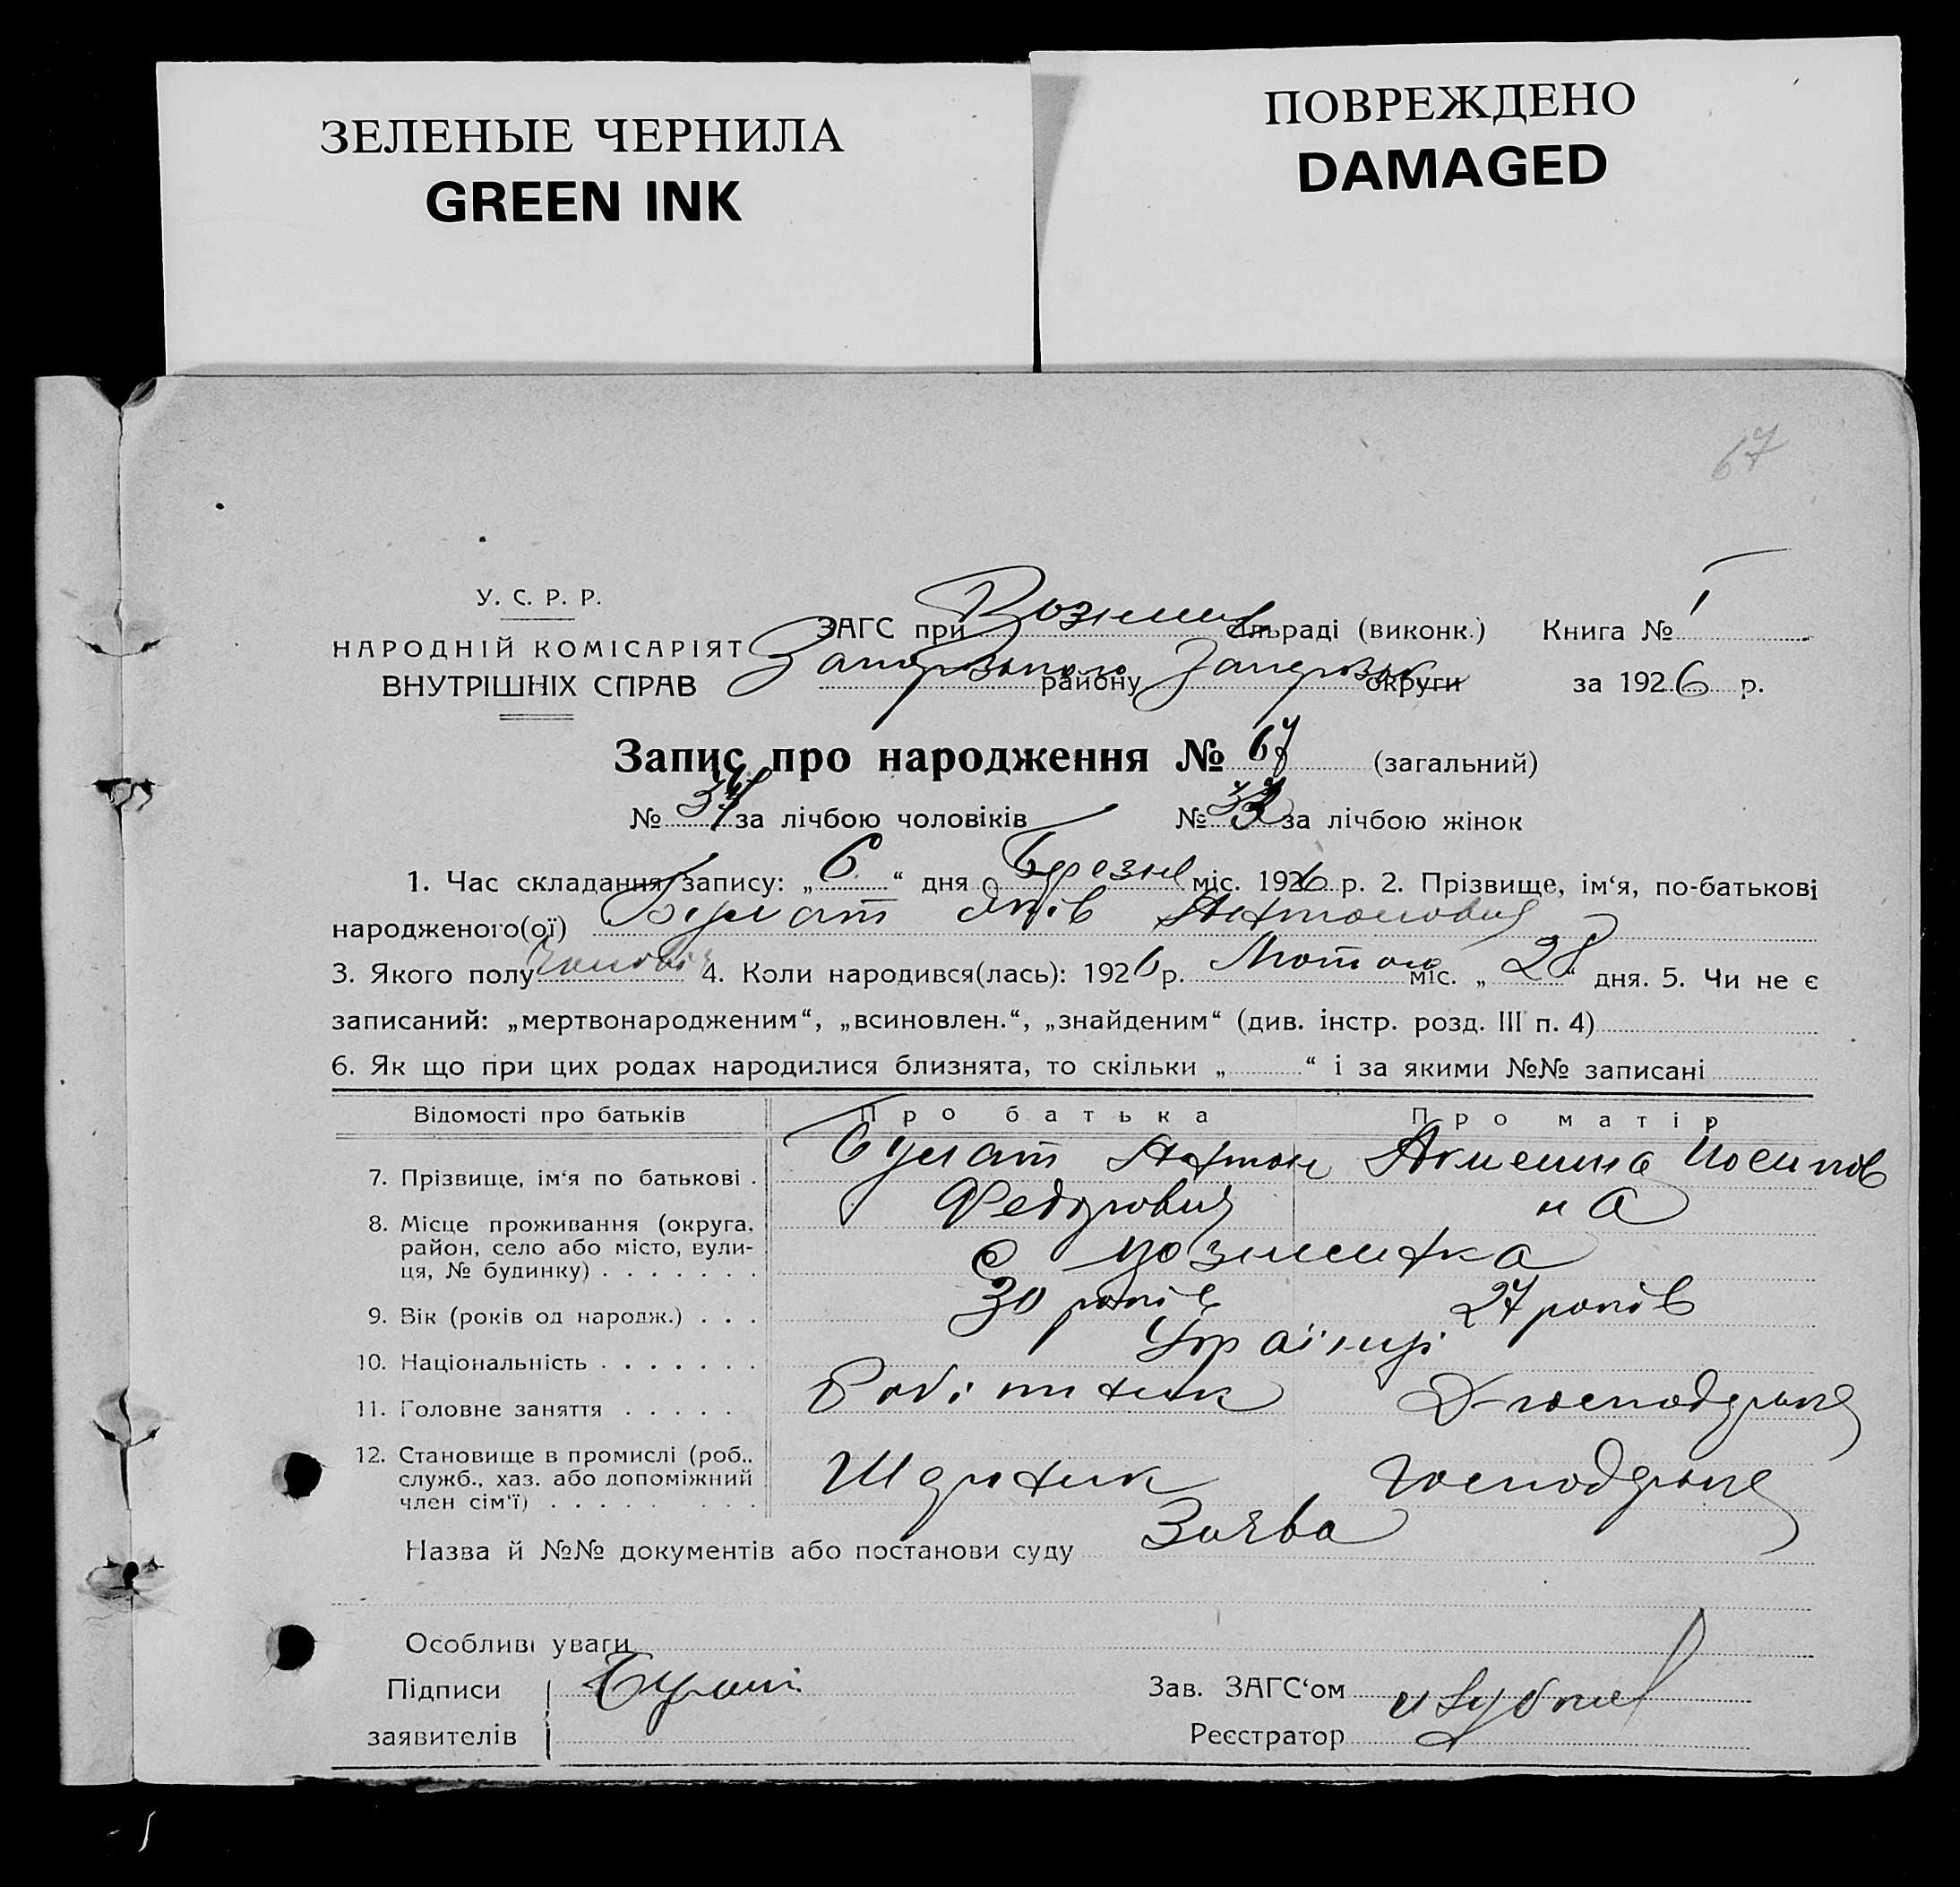 ЗЕЛЕНЫЕ ЧЕРНИЛА
GREEN INK
ПОВРЕЖДЕНО
DAMAGED
67
У. С. Р. Р.
НАРОДНІЙ КОМІСАРІЯТ
ВНУТРІШНІХ СПРАВ
ЗАГС при сільраді (виконк.) Книга № 1
району округи за 1926 р.
Запис про народження № 67 (загальний)
№ 34 за лічбою чоловіків № 33 за лічбою жінок
1. Час складання запису: „ 6 “ дня Березня міс. 1926 р. 2. Прізвище, ім‘я, по-батькові
народженого(ої) Булат Антонович
3. Якого полу чоловіч 4. Коли народився(лась): 1926 р. Лютого міс. „ 28 “ дня. 5. Чи не є
записаний: „мертвонародженим“, „всиновлен.“, „знайденим“ (див. інстр. розд. III п. 4)
6. Як що при цих родах народилися близнята, то скільки „ “ і за якими №№ записані
Відомості про батьків Про батька Про матір
7. Прізвище, ім‘я по батькові . Булат Антон Федорович Йосипов на
8. Місце проживання (округа, район, село або місто, вулиця, № будинку) . . . . . . . С Вознесенка
9. Вік (років од народж.) . . . 30 років 27 років
10. Національність . . . . . . . Українці
11. Головне заняття . . . . . Робітник Д-господарка
12. Становище в промислі (роб., служб., хаз. або допоміжний член сім‘ї) . . . . . . . . господарка
Назва й №№ документів або постанови суду Заява
Особливі уваги
Підписи заявителів Булат
Зав. ЗАГС‘ом
Реєстратор